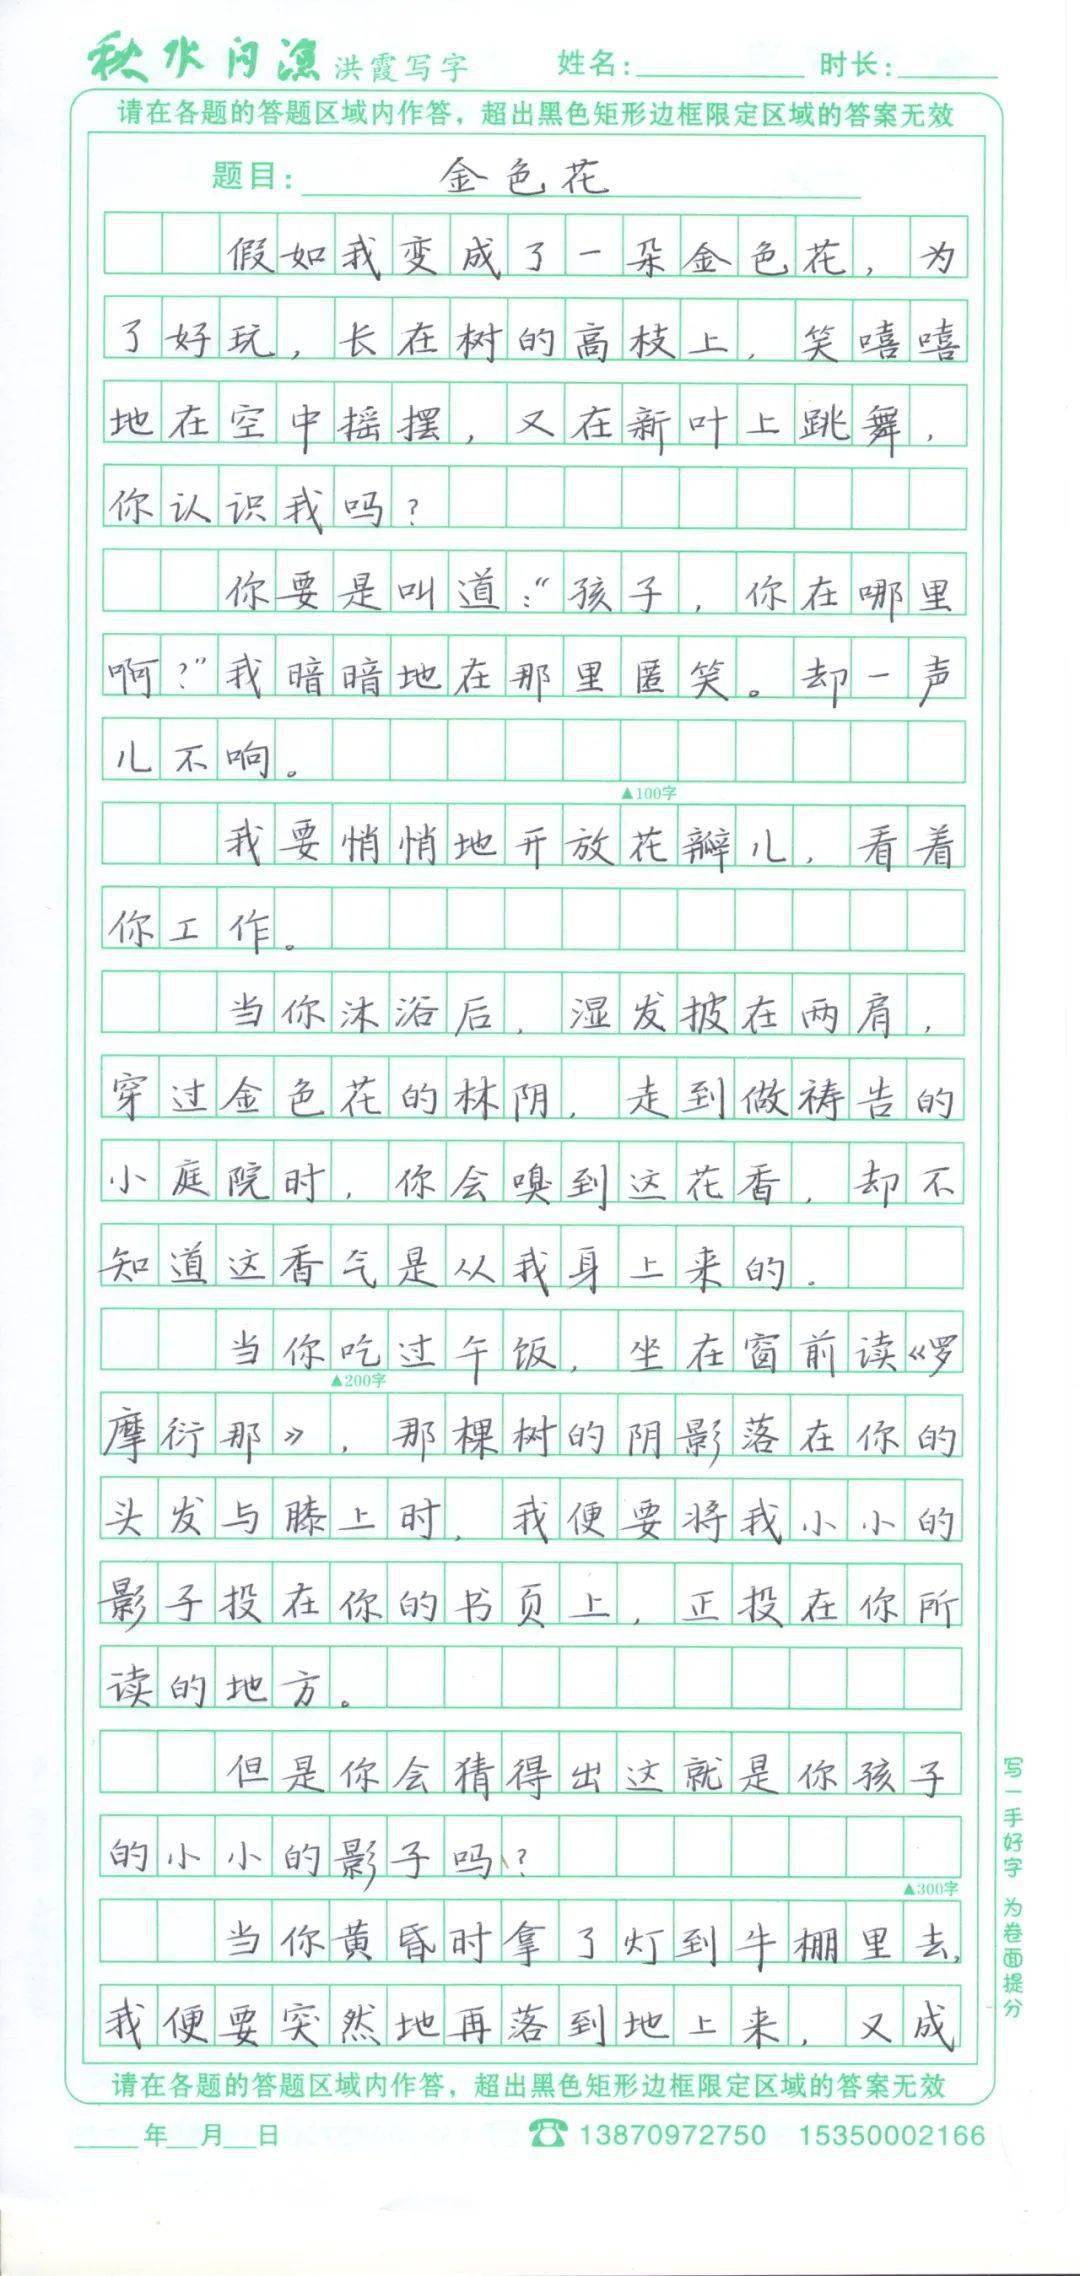 秋水问渔 洪霞写字 姓名: 时长:
请在各题的答题区域内作答，超出黑色矩形边框限定区域的答案无效
题目: 金色花
假如我变成了一朵金色花，为
了好玩，长在树的高枝上，笑嘻嘻
地在空中摇摆，又在新叶上跳舞，
你认识我吗？
你要是叫道：“孩子，你在哪里
啊？”我暗暗地在那里匿笑。却一声
儿不响。
▲100字
我要悄悄地开放花瓣儿，看着
你工作。
当你沐浴后，湿发披在两肩，
穿过金色花的林阴，走到做祷告的
小庭院时，你会嗅到这花香，却不
知道这香气是从我身上来的．
当你吃过午饭，坐在窗前读《罗
▲200字
摩衍那》，那棵树的阴影落在你的
头发与膝上时，我便要将我小小的
影子投在你的书页上，正投在你所
读的地方。
但是你会猜得出这就是你孩子
的小小的影子吗？
▲300字
当你黄昏时拿了灯到牛棚里去，
我便要突然地再落到地上来，又成
写一手好字 为卷面提分
请在各题的答题区域内作答，超出黑色矩形边框限定区域的答案无效
年 月 日 ☎ 13870972750 15350002166